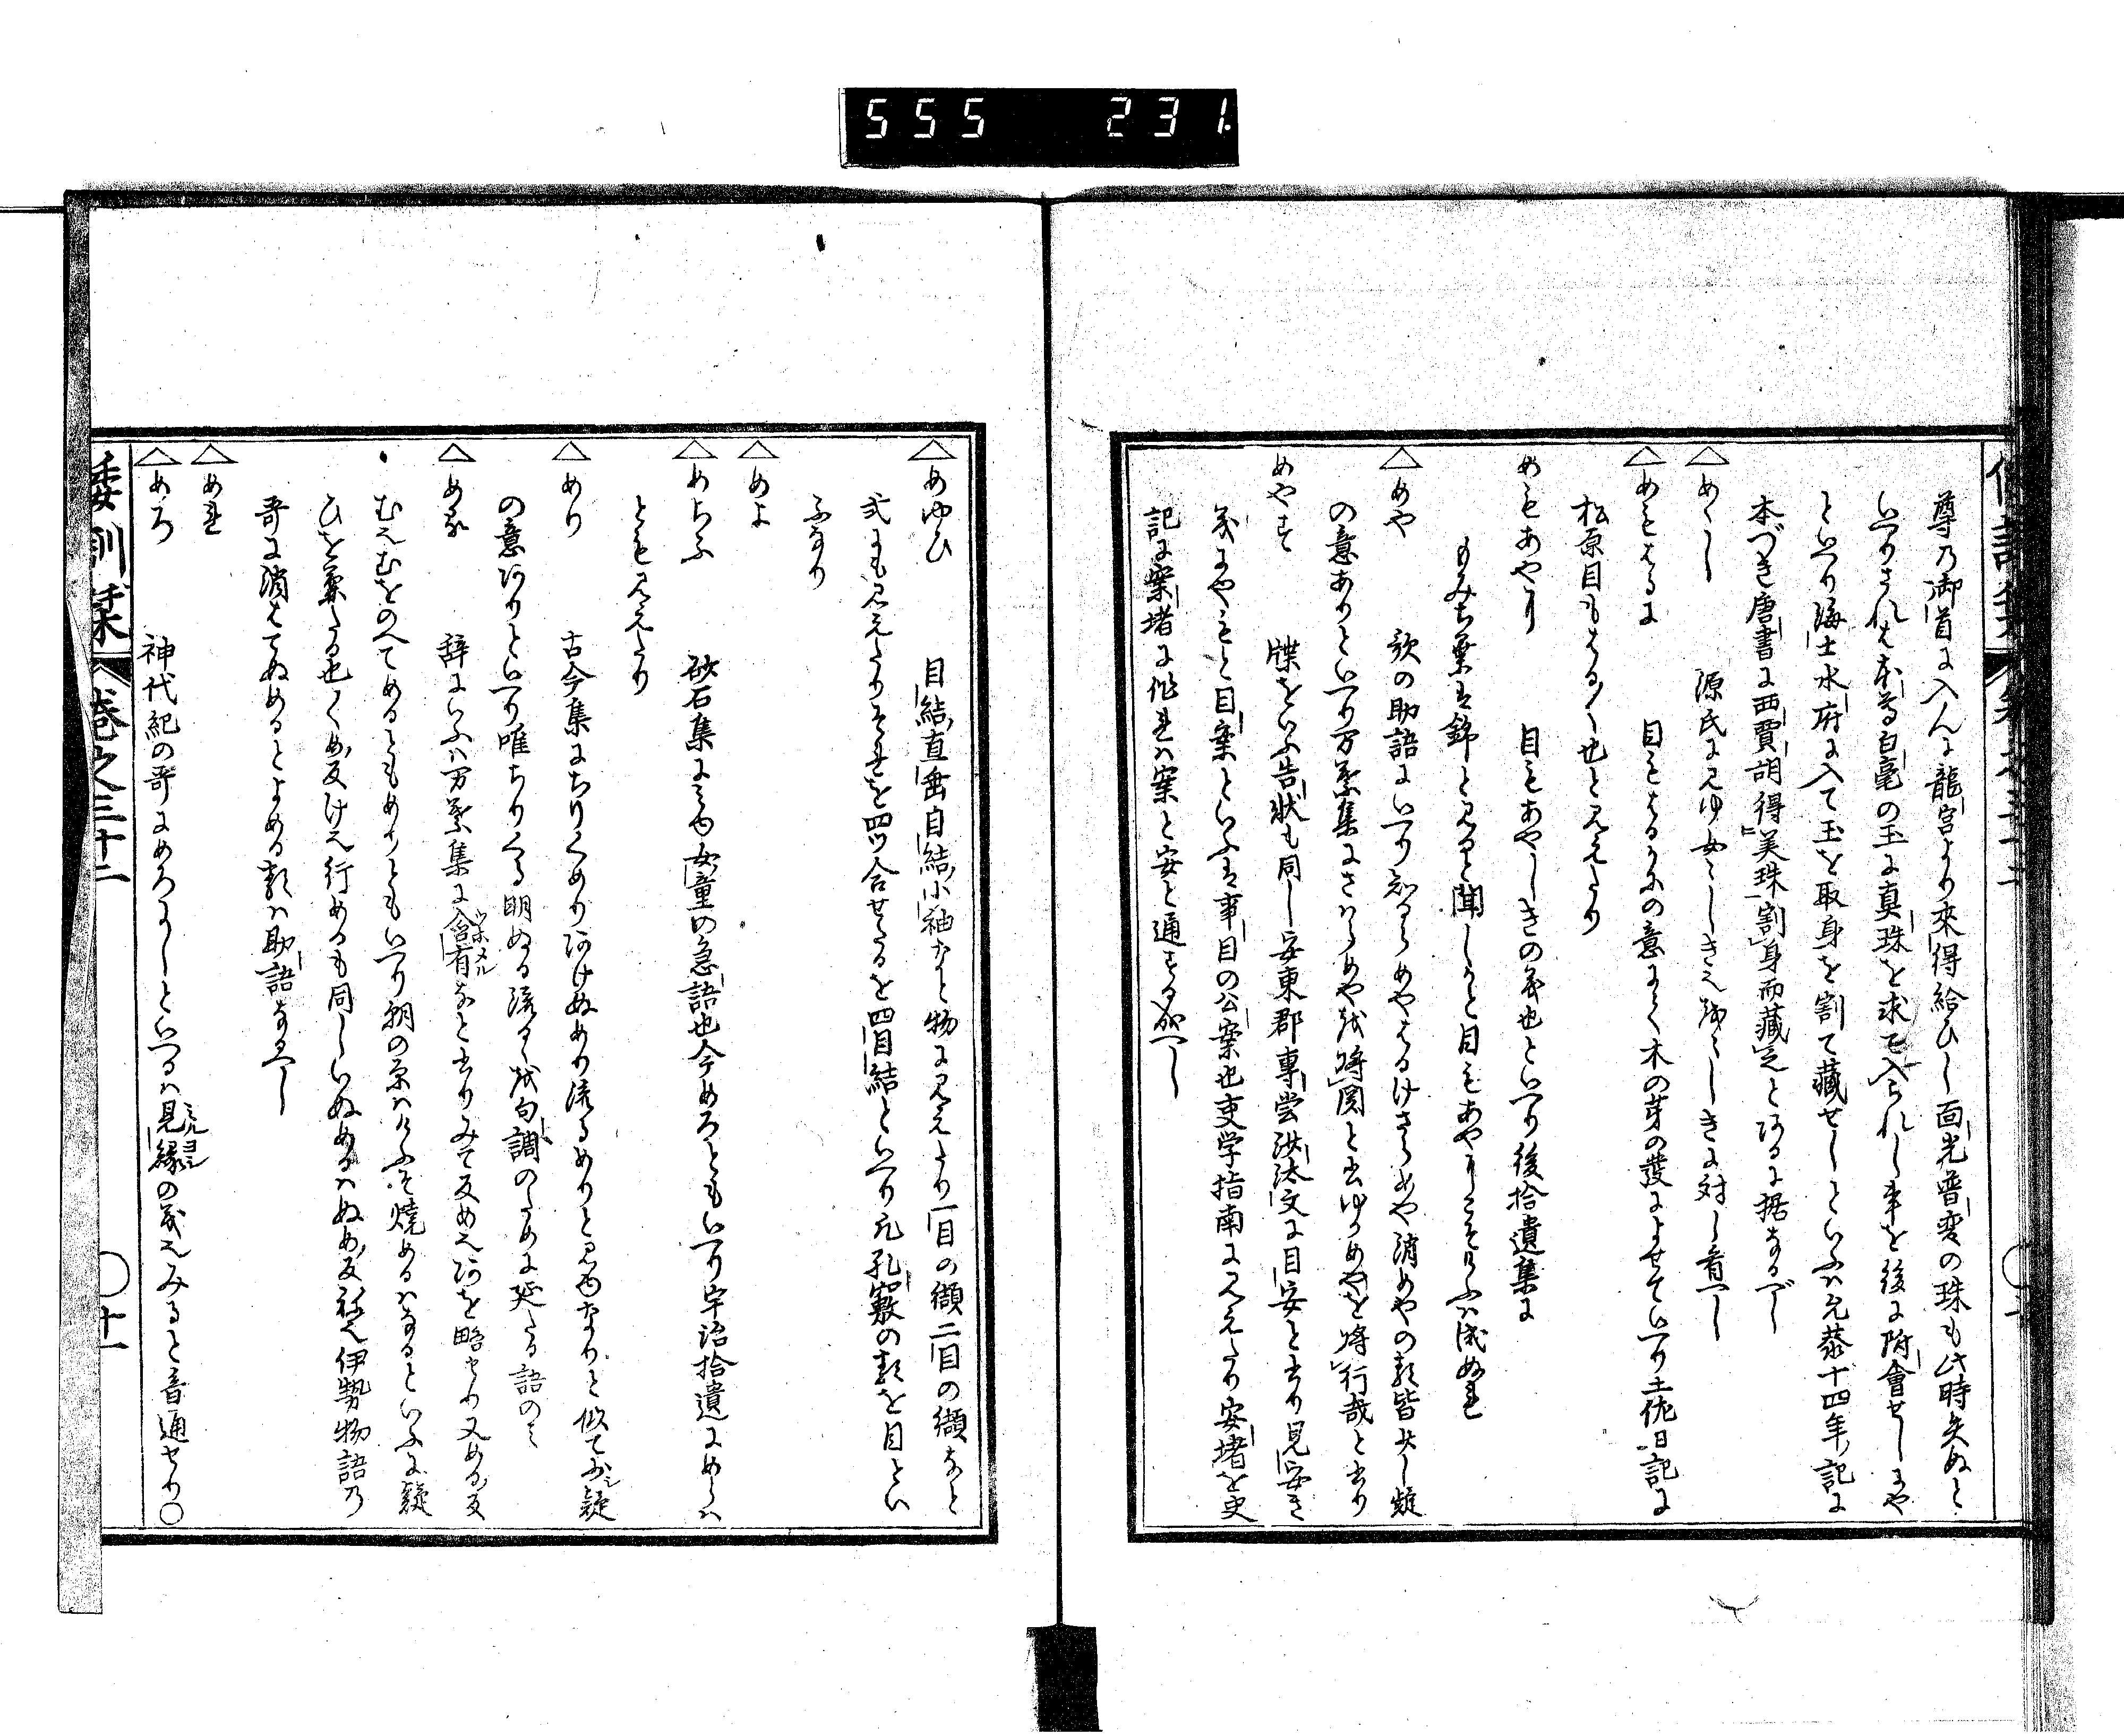 555 231
尊の御首に入んに龍宮より來得給ひし面光普変の珠も此時矢ぬと
いへりされは本尊白毫の玉に真珠を求て入られし事を後に附會せしにや
といへり海士水府に入て玉を取身を割て藏せしといふハ允恭十四年記に
本づき唐書に西賈胡得美珠割身而藏之とあるに据なるべし
△めゝし 源氏に見ゆ女々しき也雄々しきに対し看へし
△めもはるに 目もはるかの意にて木の芽の發によせていへり土佐日記に
松原目もはる〳〵也と見えたり
めもあやに 目もあやしきの義也といへり後拾遺集に
もみち葉は錦と見ると聞しかと目もあやにこそけふハ成ぬれ
△めや 歌の助語にいへり知らめやはるけさらめや消めやの類皆少し疑
の意ありといへり万葉集にさハらめや哉將関と書ゆかめやを將行哉と書り
めやす 牒をいふ告状も同し安東郡專當沙汰文に目安と書り見安き
義にやもと目案といふは事目の公案也吏学指南に見えたり安堵を史
記に案堵に作れハ案と安と通する成へし
△めゆひ 目結直垂目結小袖なと物に見えたり一目の纈二目の纈なと
式にも見えたりそれを四ツ合せたるを四目結といへり凡孔竅の類を目とい
ふなり
△めよ
△めらふ 砂石集に見ゆ女童の急語也今めろともいへり宇治拾遺にめらハ
とも見えたり
△めり 古今集にちりくめりあけぬめり流るめりと見ゆなりと似て少し疑
の意ありといへり唯ちりくる明ぬる流るゝ哉句調のために延たる語のミ
△める 辞にいふハ万葉集に含有フホメルなと書りみて反めえあを略せり又める反
むえむをのへてめるともめりともいへり朝の原ハけふそ焼めるハなるといふに疑
ひを兼たる也くめ反けえ行めるも同しいぬめるハぬめ反ねえ伊勢物語の
哥に消はてぬめるとよめる類ハ助語なるへし
△めれ
△めろ 神代紀の哥にめろよしといへるハ見縁ミルヨシの義也みると音通せり〇
倭訓栞 巻之三十二 〇十一